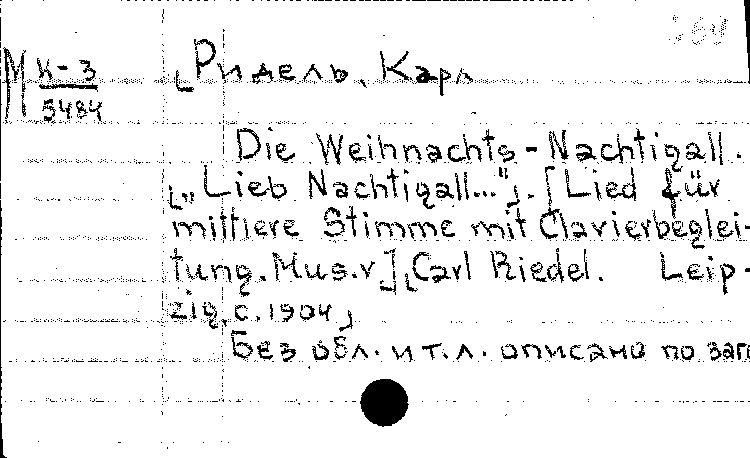 М К-3
5484
⌊Ридель, Карл
Die Weihnachts-Nachtigall.
⌊„Lieb Nachtigall..."⌋. [Lied für
mittlere Stimme mit Clavierbeglei-
tung. Mus. v.] ⌊Carl Riedel. Leip-
zig, c. 1904⌋
Без обл. и т. л. описано по заг